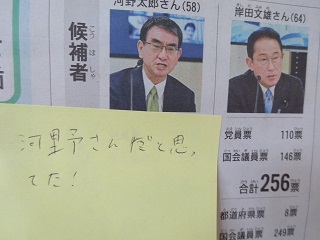 河野太郎さん(58) 岸田文雄さん(64)
候補者
こうほしゃ
党員票 110票
国会議員票 146票
合計256票
都道府県票 8票
国会議員票 249票
河里予さんだと思っ
てた!